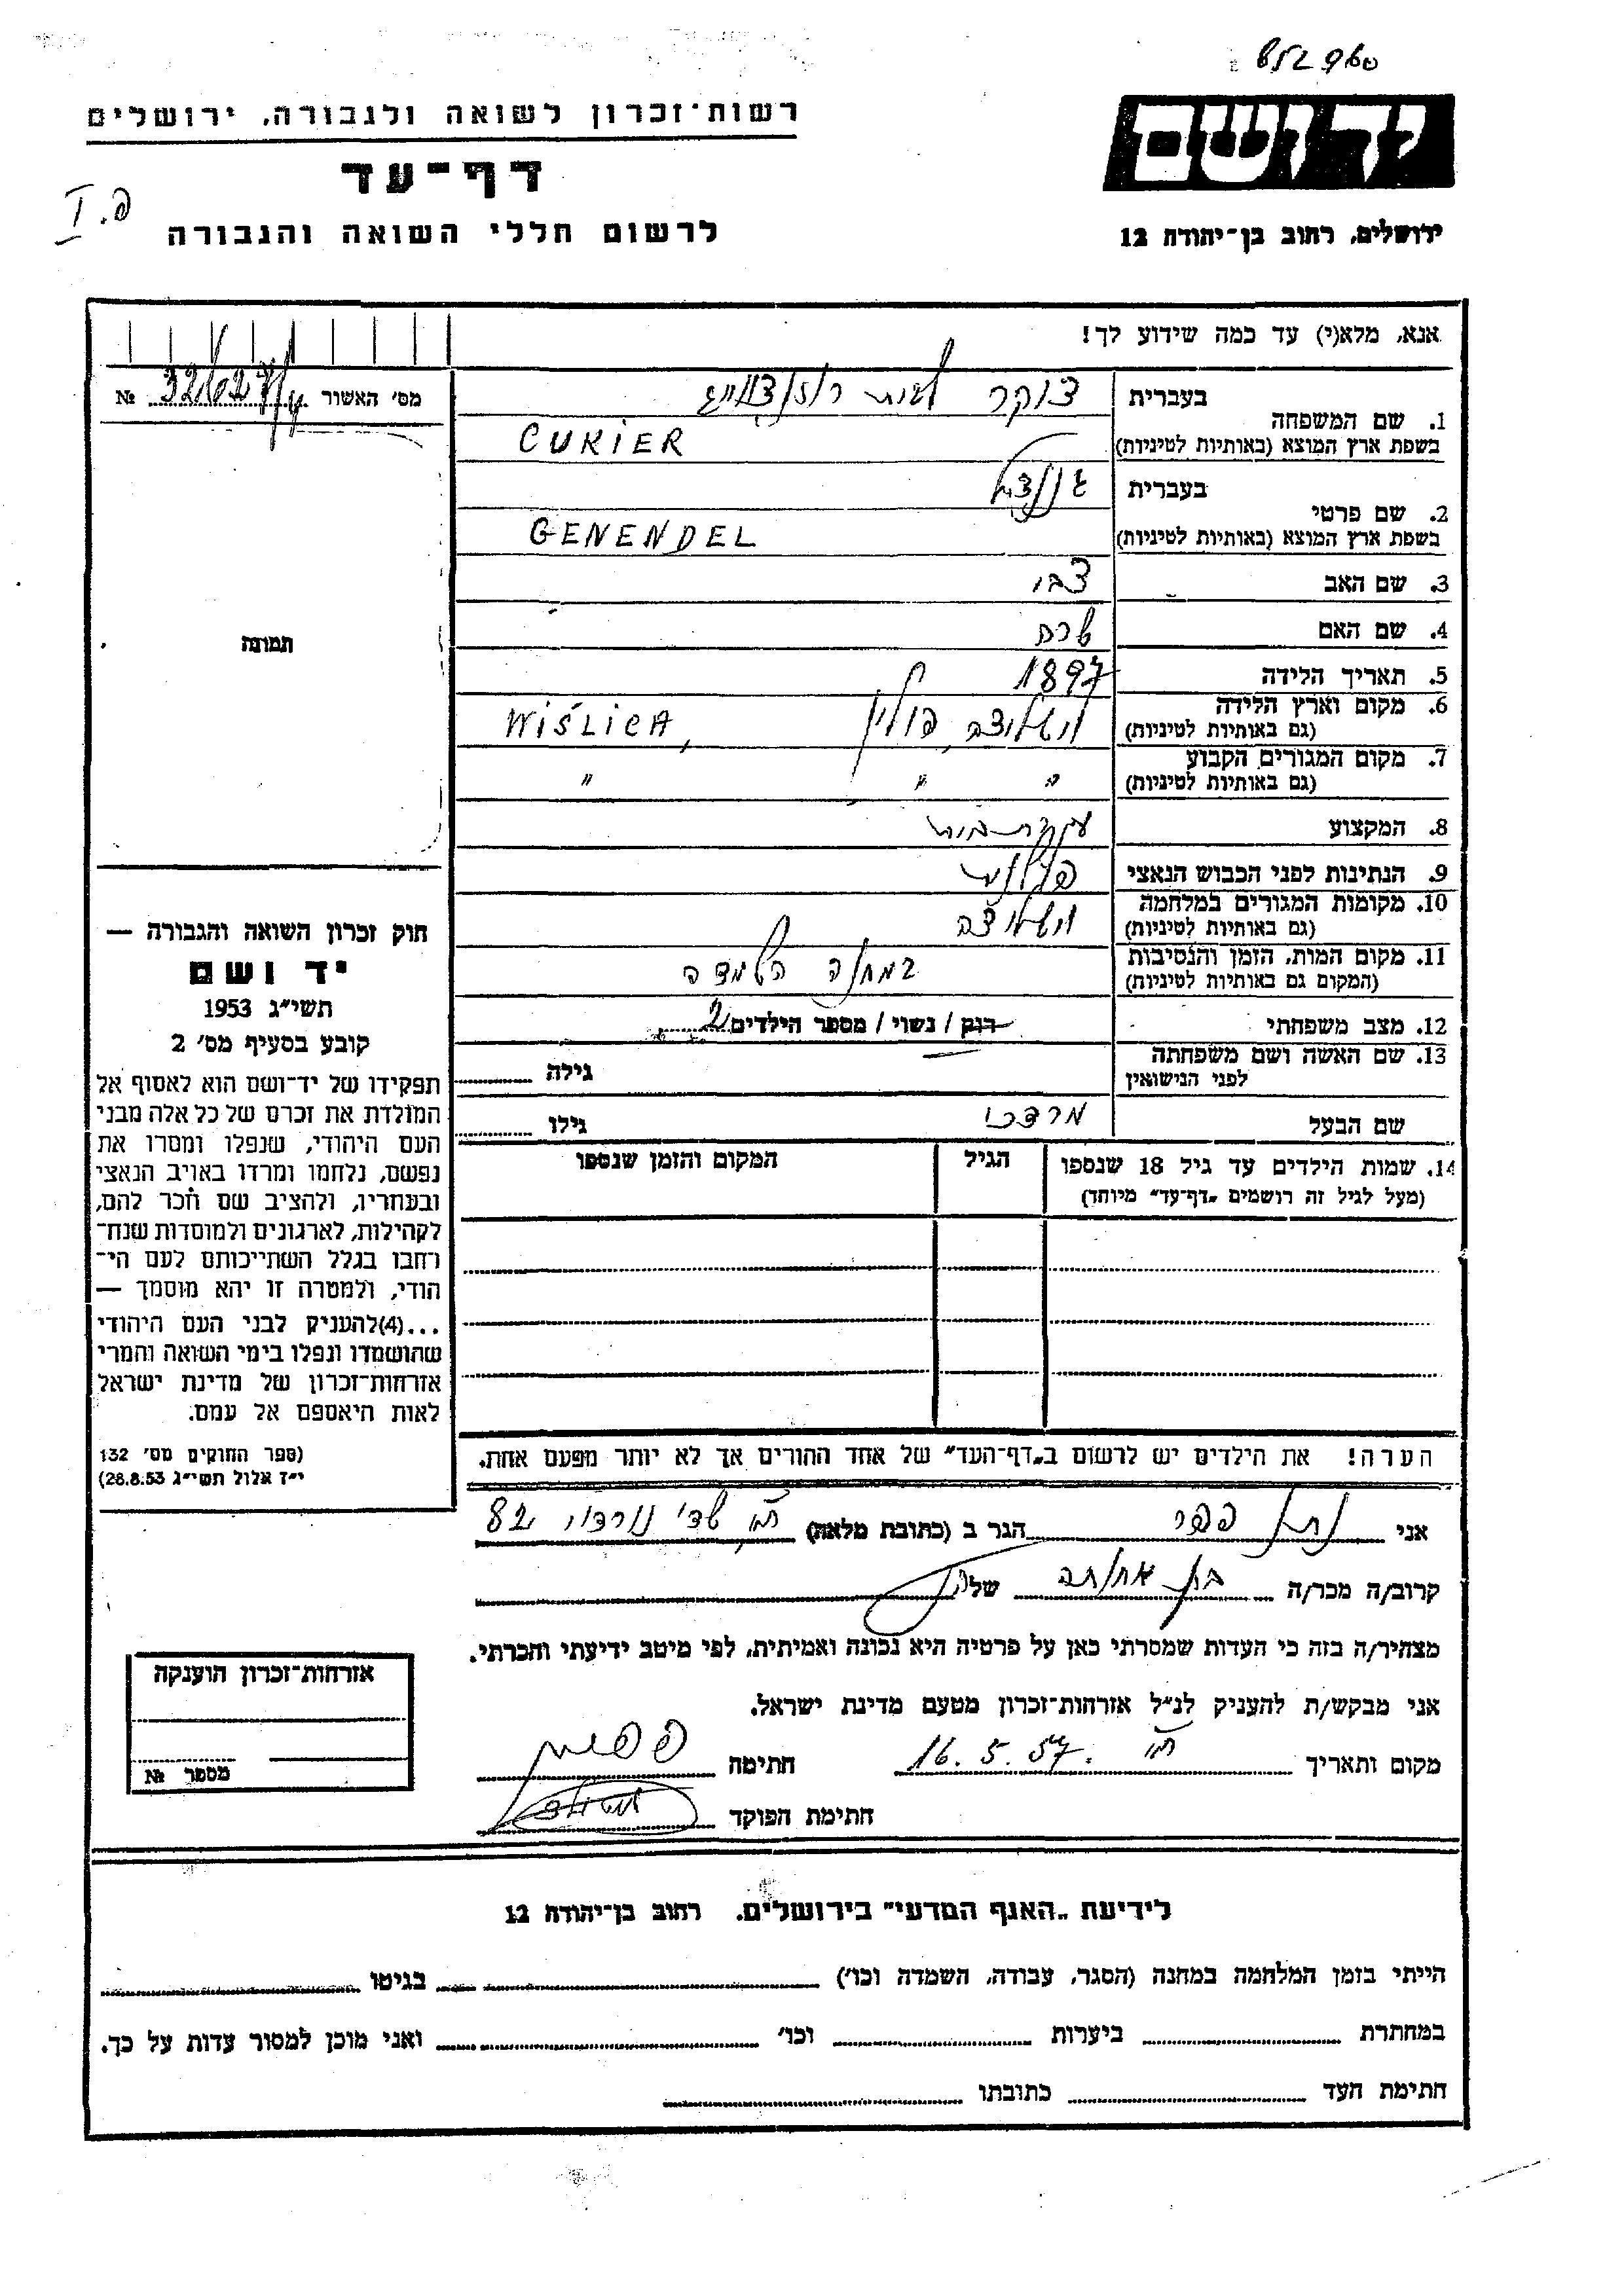 רשות־זכרון לשואה ולגבורה, ירושלים
יד ושם
דף־עד
פ. I
לרשום חללי השואה והגבורה
ירושלים, רחוב בן־יהודה 12
אנא, מלא(י) עד כמה שידוע לך!
מס׳ האשור №
תמונה
1. שם המשפחה
בעברית צוקר לבית
בשפת ארץ המוצא (באותיות לטיניות) CUKIER
2. שם פרטי
בעברית גננדל
בשפת ארץ המוצא (באותיות לטיניות) GENENDEL
3. שם האב צבי
4. שם האם שרה
5. תאריך הלידה 1897
6. מקום וארץ הלידה (גם באותיות לטיניות) וישליצה, פולין WIŚLICA,
7. מקום המגורים הקבוע (גם באותיות לטיניות) " " "
8. המקצוע עקרת־בית
9. הנתינות לפני הכבוש הנאצי פולנית
10. מקומות המגורים במלחמה (גם באותיות לטיניות) וישליצה
11. מקום המות, הזמן והנסיבות (המקום גם באותיות לטיניות) במחנה השמדה
12. מצב משפחתי רוק / נשוי / מספר הילדים 2
13. שם האשה ושם משפחתה לפני הנישואין גילה
שם הבעל מרדכי גילו
14. שמות הילדים עד גיל 18 שנספו (מעל לגיל זה רושמים „דף־עד״ מיוחד)
הגיל
המקום והזמן שנספו
הערה! את הילדים יש לרשום ב„דף־העד״ של אחד ההורים אך לא יותר מפעם אחת.
חוק זכרון השואה והגבורה —
יד ושם
תשי״ג 1953
קובע בסעיף מס׳ 2
תפקידו של יד־ושם הוא לאסוף אל
המולדת את זכרם של כל אלה מבני
העם היהודי, שנפלו ומסרו את
נפשם, נלחמו ומרדו באויב הנאצי
ובעוזריו, ולהציב שם וזכר להם,
לקהילות, לארגונים ולמוסדות שנח־
רחבו בגלל השתייכותם לעם הי־
הודי, ולמטרה זו יהא מוסמך —
...(4)להעניק לבני העם היהודי
שהושמדו ונפלו בימי השואה והמרי
אזרחות־זכרון של מדינת ישראל
לאות היאספם אל עמם.
(ספר החוקים מס׳ 132
י״ז אלול תשי״ג 28.8.53)
אני נתן פפר הגר ב (כתובת מלאה) ת״א שד׳ נורדוי 82
קרוב/ה מכר/ה בן אחותה של
מצהיר/ה בזה כי העדות שמסרתי כאן על פרטיה היא נכונה ואמיתית, לפי מיטב ידיעתי והכרתי.
אני מבקש/ת להעניק לנ״ל אזרחות־זכרון מטעם מדינת ישראל.
מקום ותאריך ת״א 16.5.57. חתימה
חתימת הפוקד
אזרחות־זכרון הוענקה
מספר №
לידיעת „האגף המדעי״ בירושלים. רחוב בן־יהודה 12
הייתי בזמן המלחמה במחנה (הסגר, עבודה, השמדה וכו׳) בגיטו
במחתרת ביערות וכו׳ ואני מוכן למסור עדות על כך.
חתימת העד כתובתו